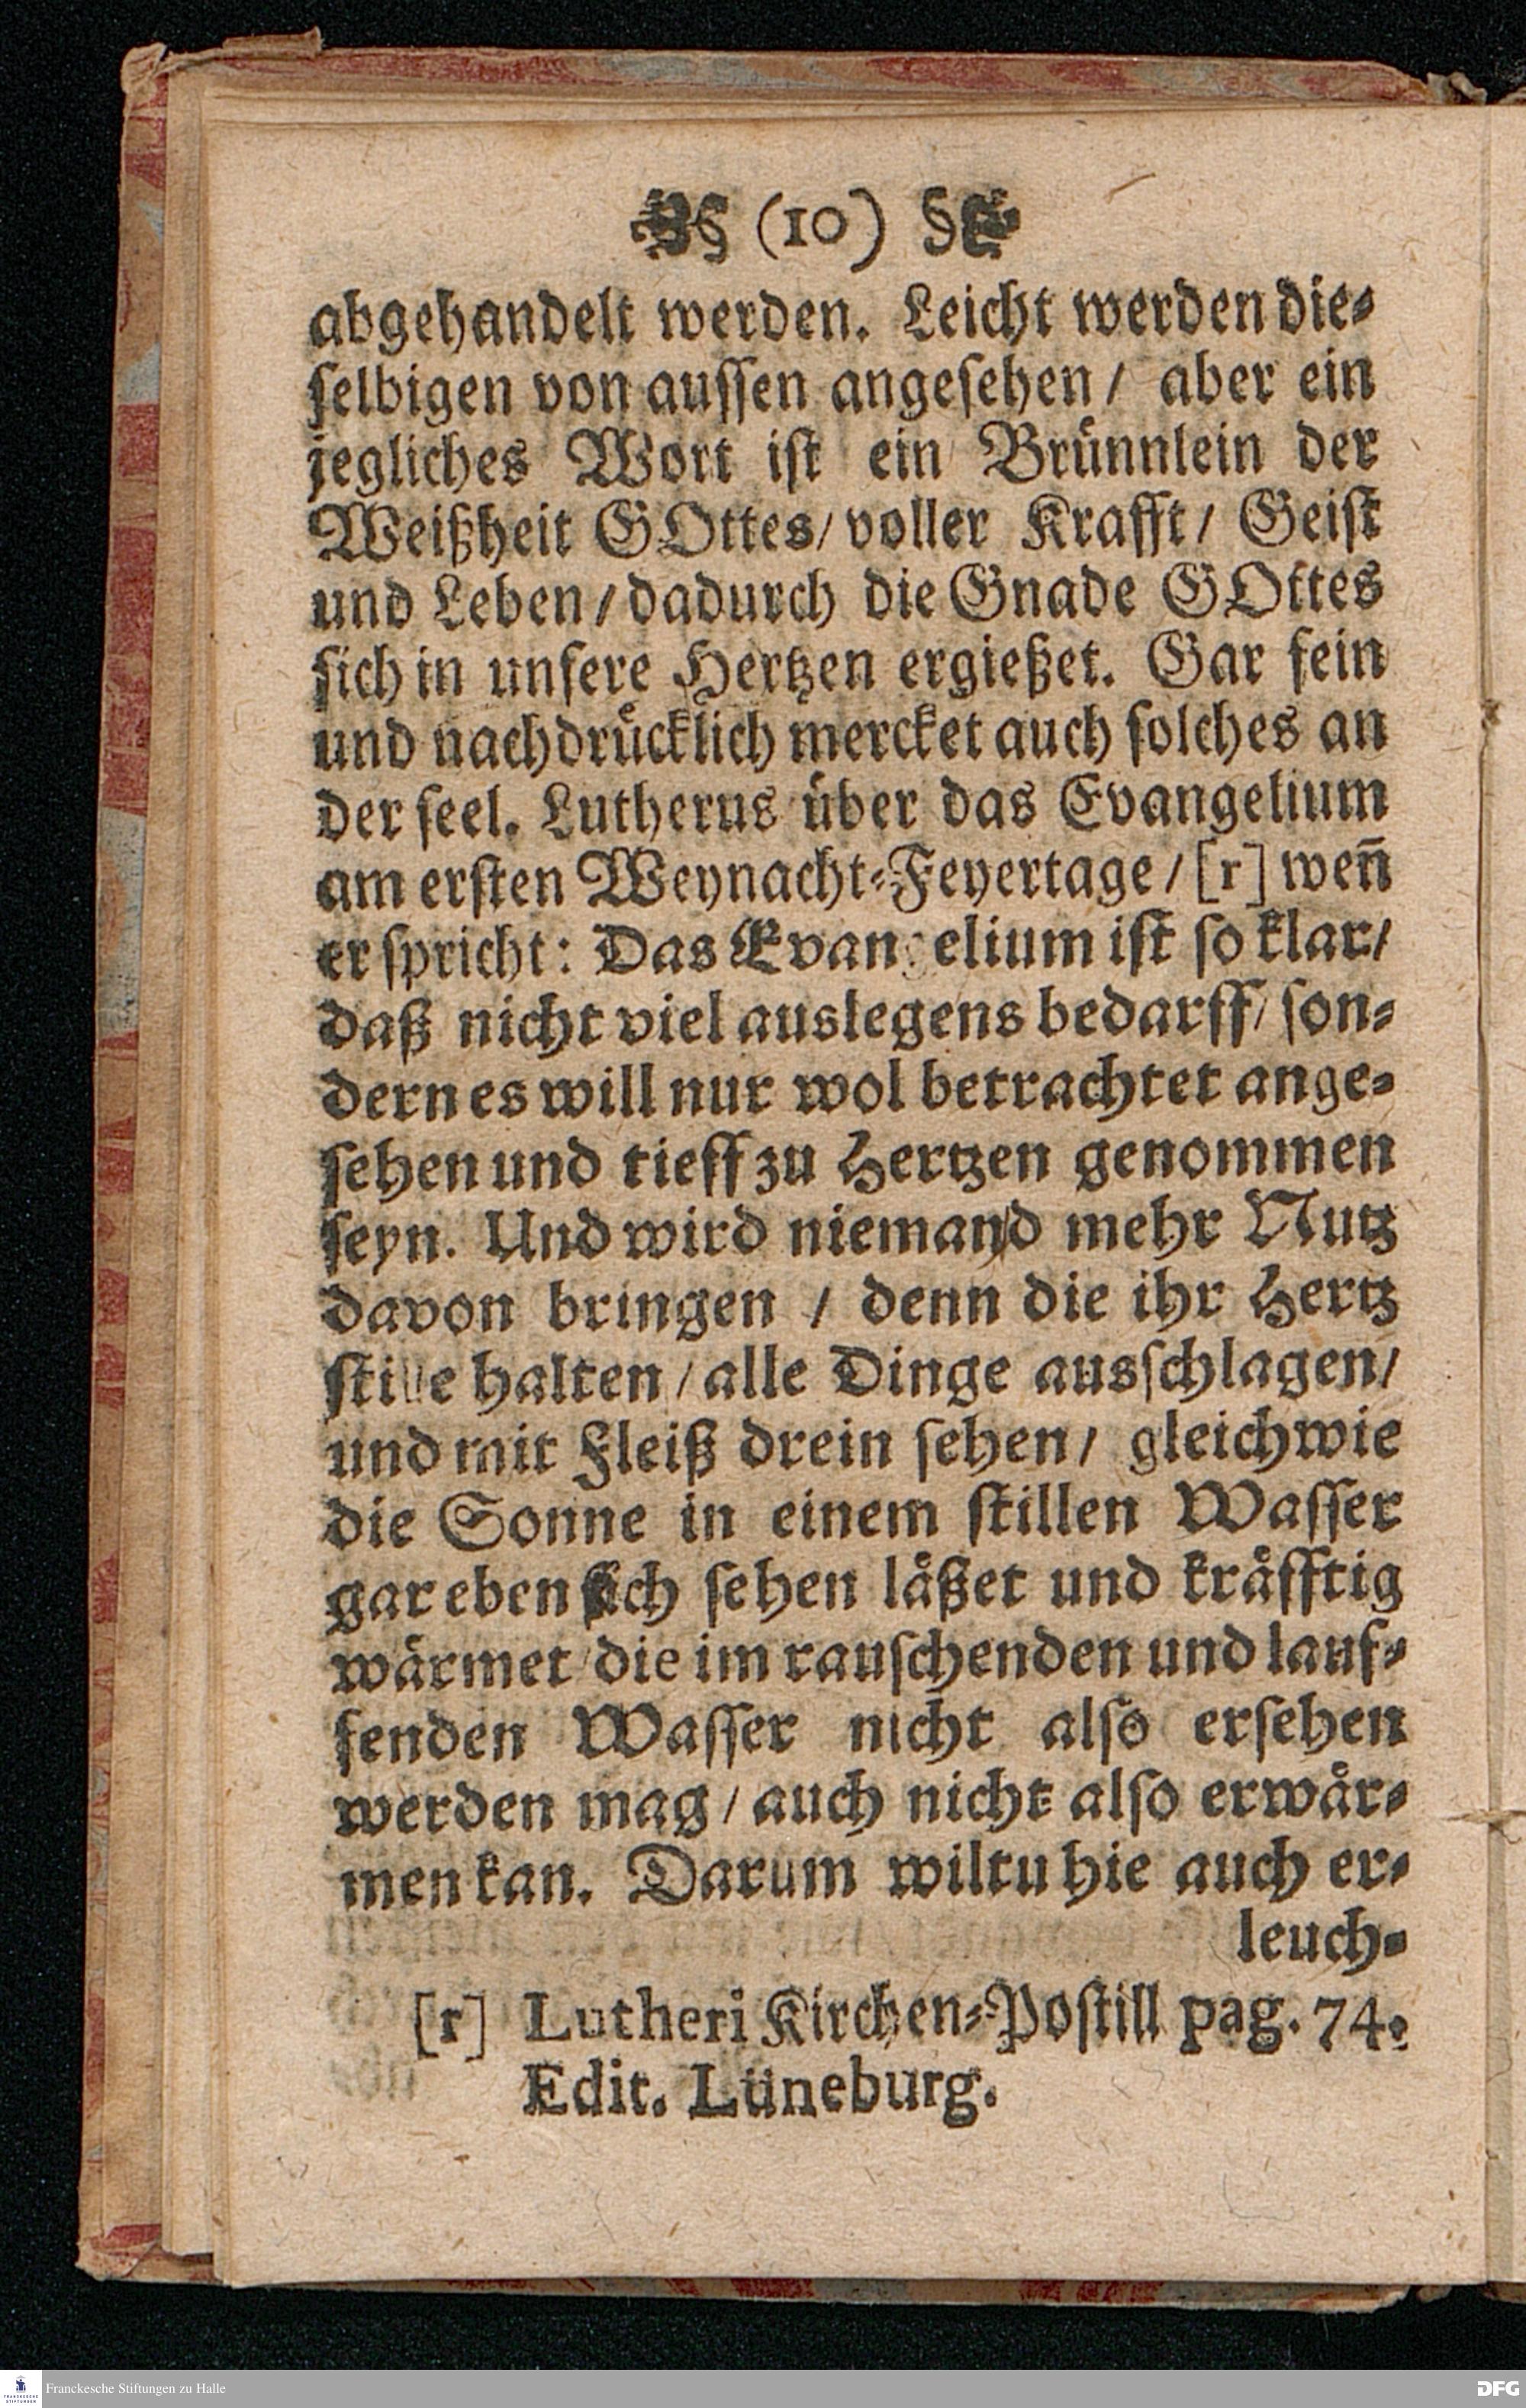 § (10) §
abgehandelt werden. Leicht werden die-
selbigen von aussen angesehen / aber ein
jegliches Wort ist ein Brünnlein der
Weißheit GOttes / voller Krafft / Geist
und Leben / dadurch die Gnade GOttes
sich in unsere Hertzen ergießet. Gar fein
und nachdrücklich mercket auch solches an
der seel. Lutherus über das Evangelium
am ersten Weynacht-Feyertage / [r] weñ
er spricht: Das Evangelium ist so klar /
daß nicht viel auslegens bedarff / son-
dern es will nur wol betrachtet ange-
sehen und tieff zu Hertzen genommen
seyn. Und wird niemand mehr Nutz
davon bringen / denn die ihr Hertz
stille halten / alle Dinge ausschlagen /
und mit Fleiß drein sehen / gleichwie
die Sonne in einem stillen Wasser
gar eben sich sehen läßet und kräfftig
wärmet / die im rauschenden und lauf-
fenden Wasser nicht also ersehen
werden mag / auch nicht also erwär-
men kan. Darum wiltu hie auch er-
leuch-
[r] Lutheri Kirchen-Postill pag. 74.
Edit. Lüneburg.
FRANCKESCHE STIFTUNGEN
Franckesche Stiftungen zu Halle
DFG